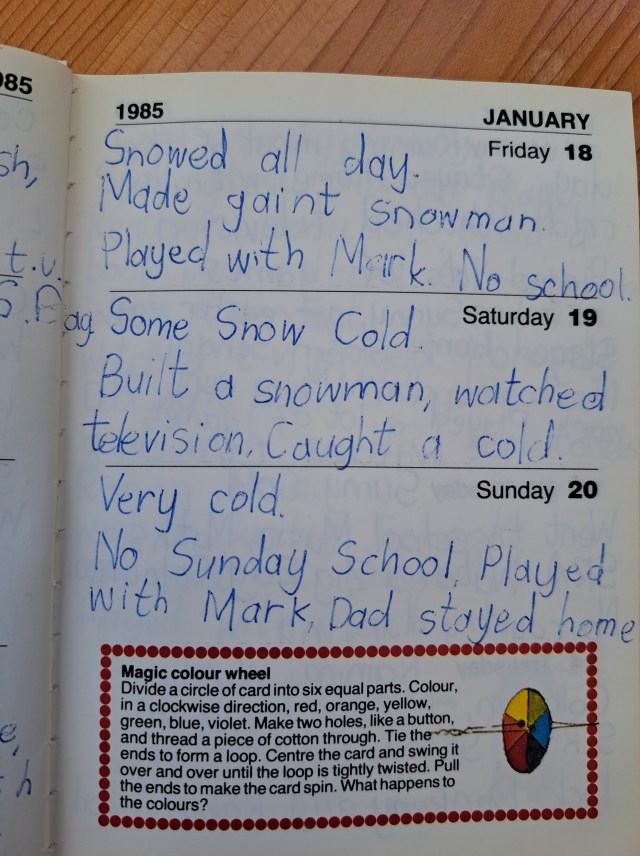 985
sh,
t.v.
S.Bag
e,
h
1985 JANUARY
Friday 18
Snowed all day.
Made gaint snowman.
Played with Mark. No school.
Saturday 19
Some Snow Cold.
Built a snowman, watched
television, Caught a cold.
Sunday 20
Very cold.
No Sunday School, Played
with Mark, Dad stayed home
Magic colour wheel
Divide a circle of card into six equal parts. Colour,
in a clockwise direction, red, orange, yellow,
green, blue, violet. Make two holes, like a button,
and thread a piece of cotton through. Tie the
ends to form a loop. Centre the card and swing it
over and over until the loop is tightly twisted. Pull
the ends to make the card spin. What happens to
the colours?